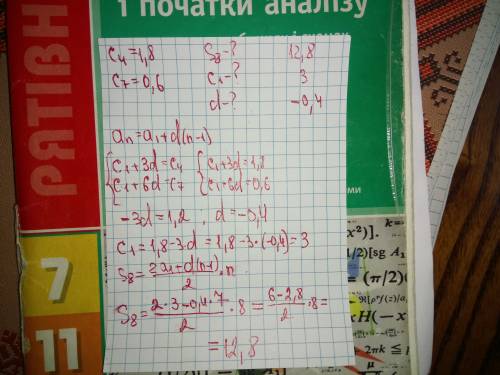 1 початки аналізу
РЯТІВН
C₄=1,8 S₈-? 12,8
C₇=0,6 C₁-? 3
d-? -0,4
aₙ=a₁+d(n-1)
{C₁+3d=C₄ {C₁+3d=1,2
{C₁+6d=C₇ {C₁+6d=0,6
-3d=1,2 ; d=-0,4
C₁=1,8-3d=1,8-3·(-0,4)=3
S₈=(2a₁+d(n-1))/2·n
S₈=(2·3-0,4·7)/2·8=(6-2,8)/2·8=
=12,8
7
11
k=
x²)].
1/2)[sg A₁
(π/2)(
H(-x
2πk ≤
μ